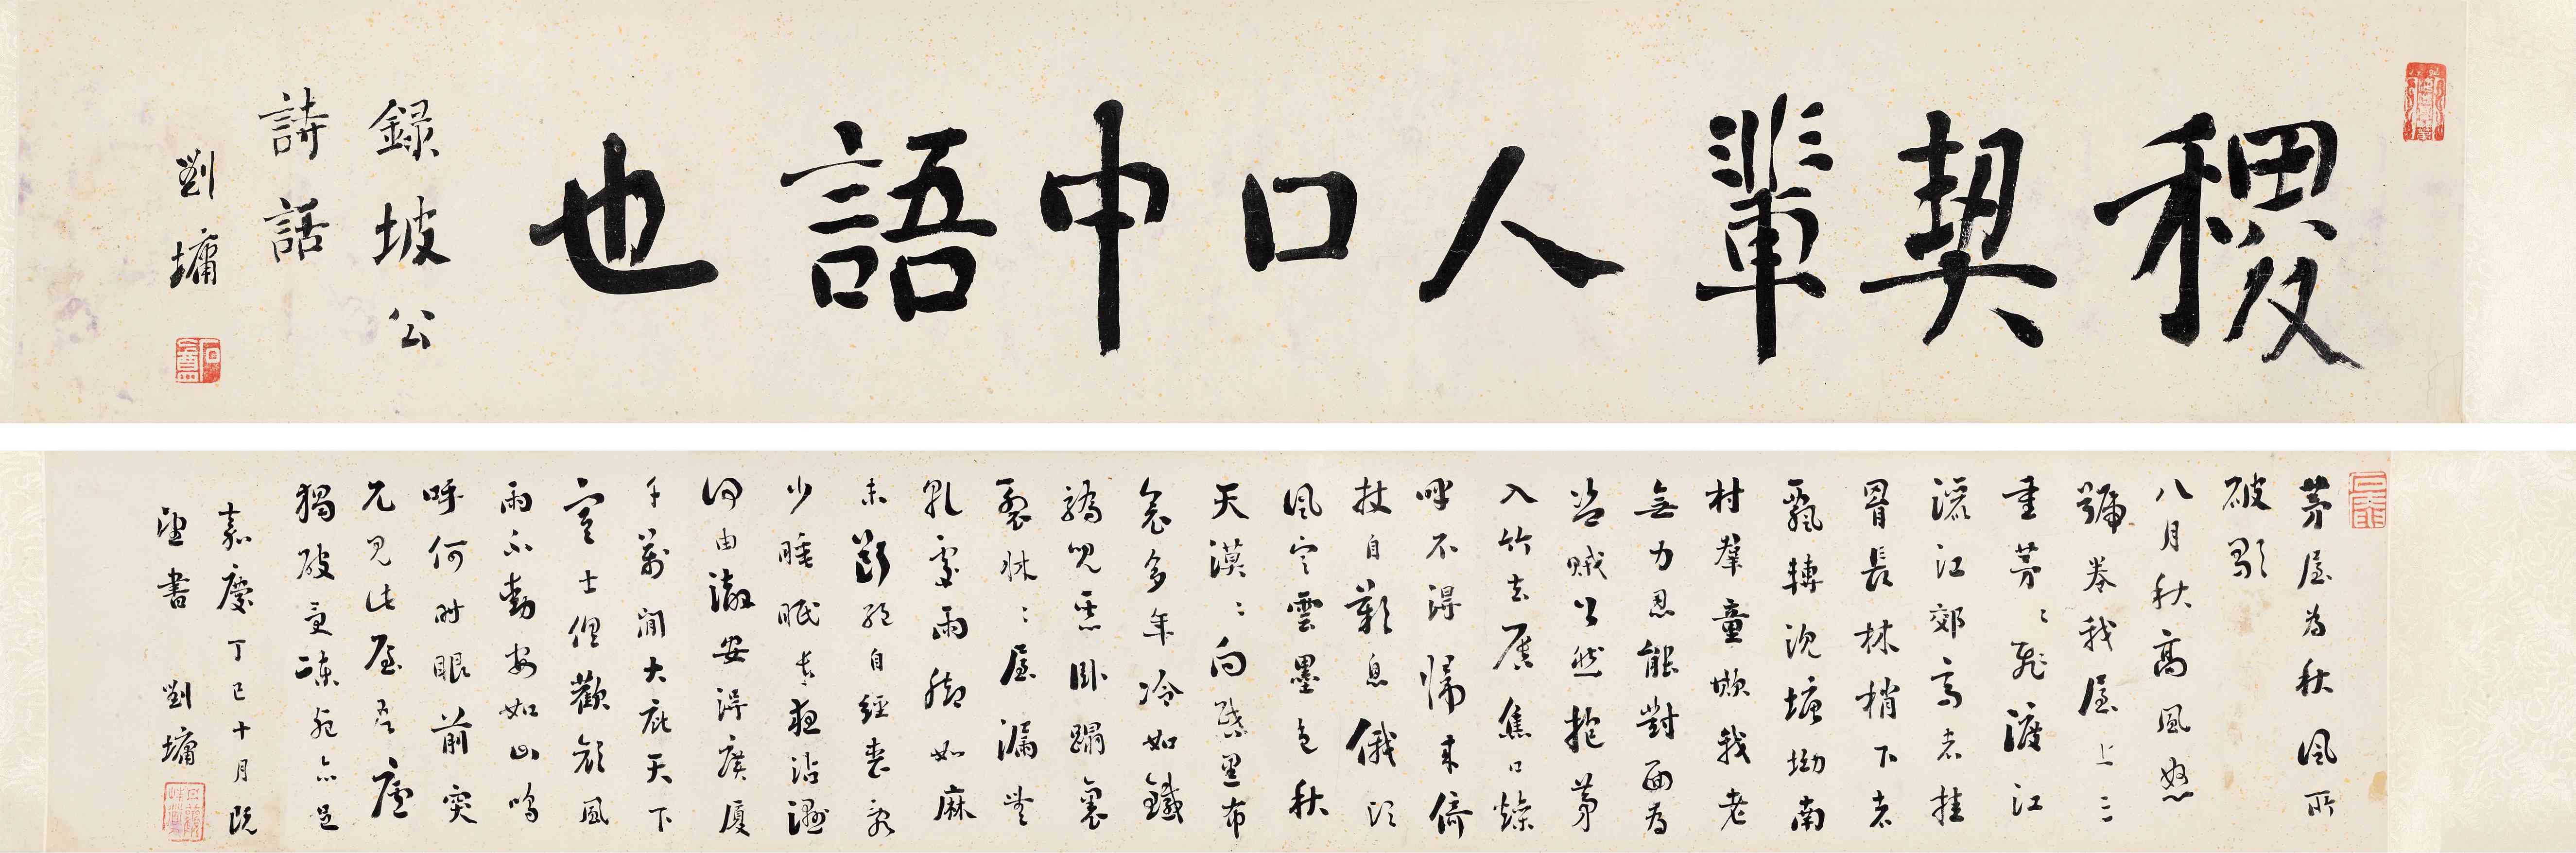 稷契輩人口中語也
錄坡公
詩話
劉墉
茅屋為秋風所
破歌
八月秋高風怒
號卷我屋上三
重茅〻飛渡江
灑江郊高者挂
罥長林梢下者
飄轉沉塘坳南
村羣童欺我老
無力忍能對面為
盜賊公然抱茅
入竹去脣焦口燥
呼不得歸來倚
杖自歎息俄頃
風定雲墨色秋
天漠〻向昏黑布
衾多年冷如鐵
驕兒惡臥蹋裏
裂牀〻屋漏無
乾處雨腳如麻
未斷絕自經喪亂
少睡眠長夜沾濕
何由徹安得廣廈
千萬間大庇天下
寒士俱歡顏風
雨不動安如山嗚
呼何時眼前突
兀見此屋吾廬
獨破受凍死亦足
嘉慶丁巳十月既
望書 劉墉